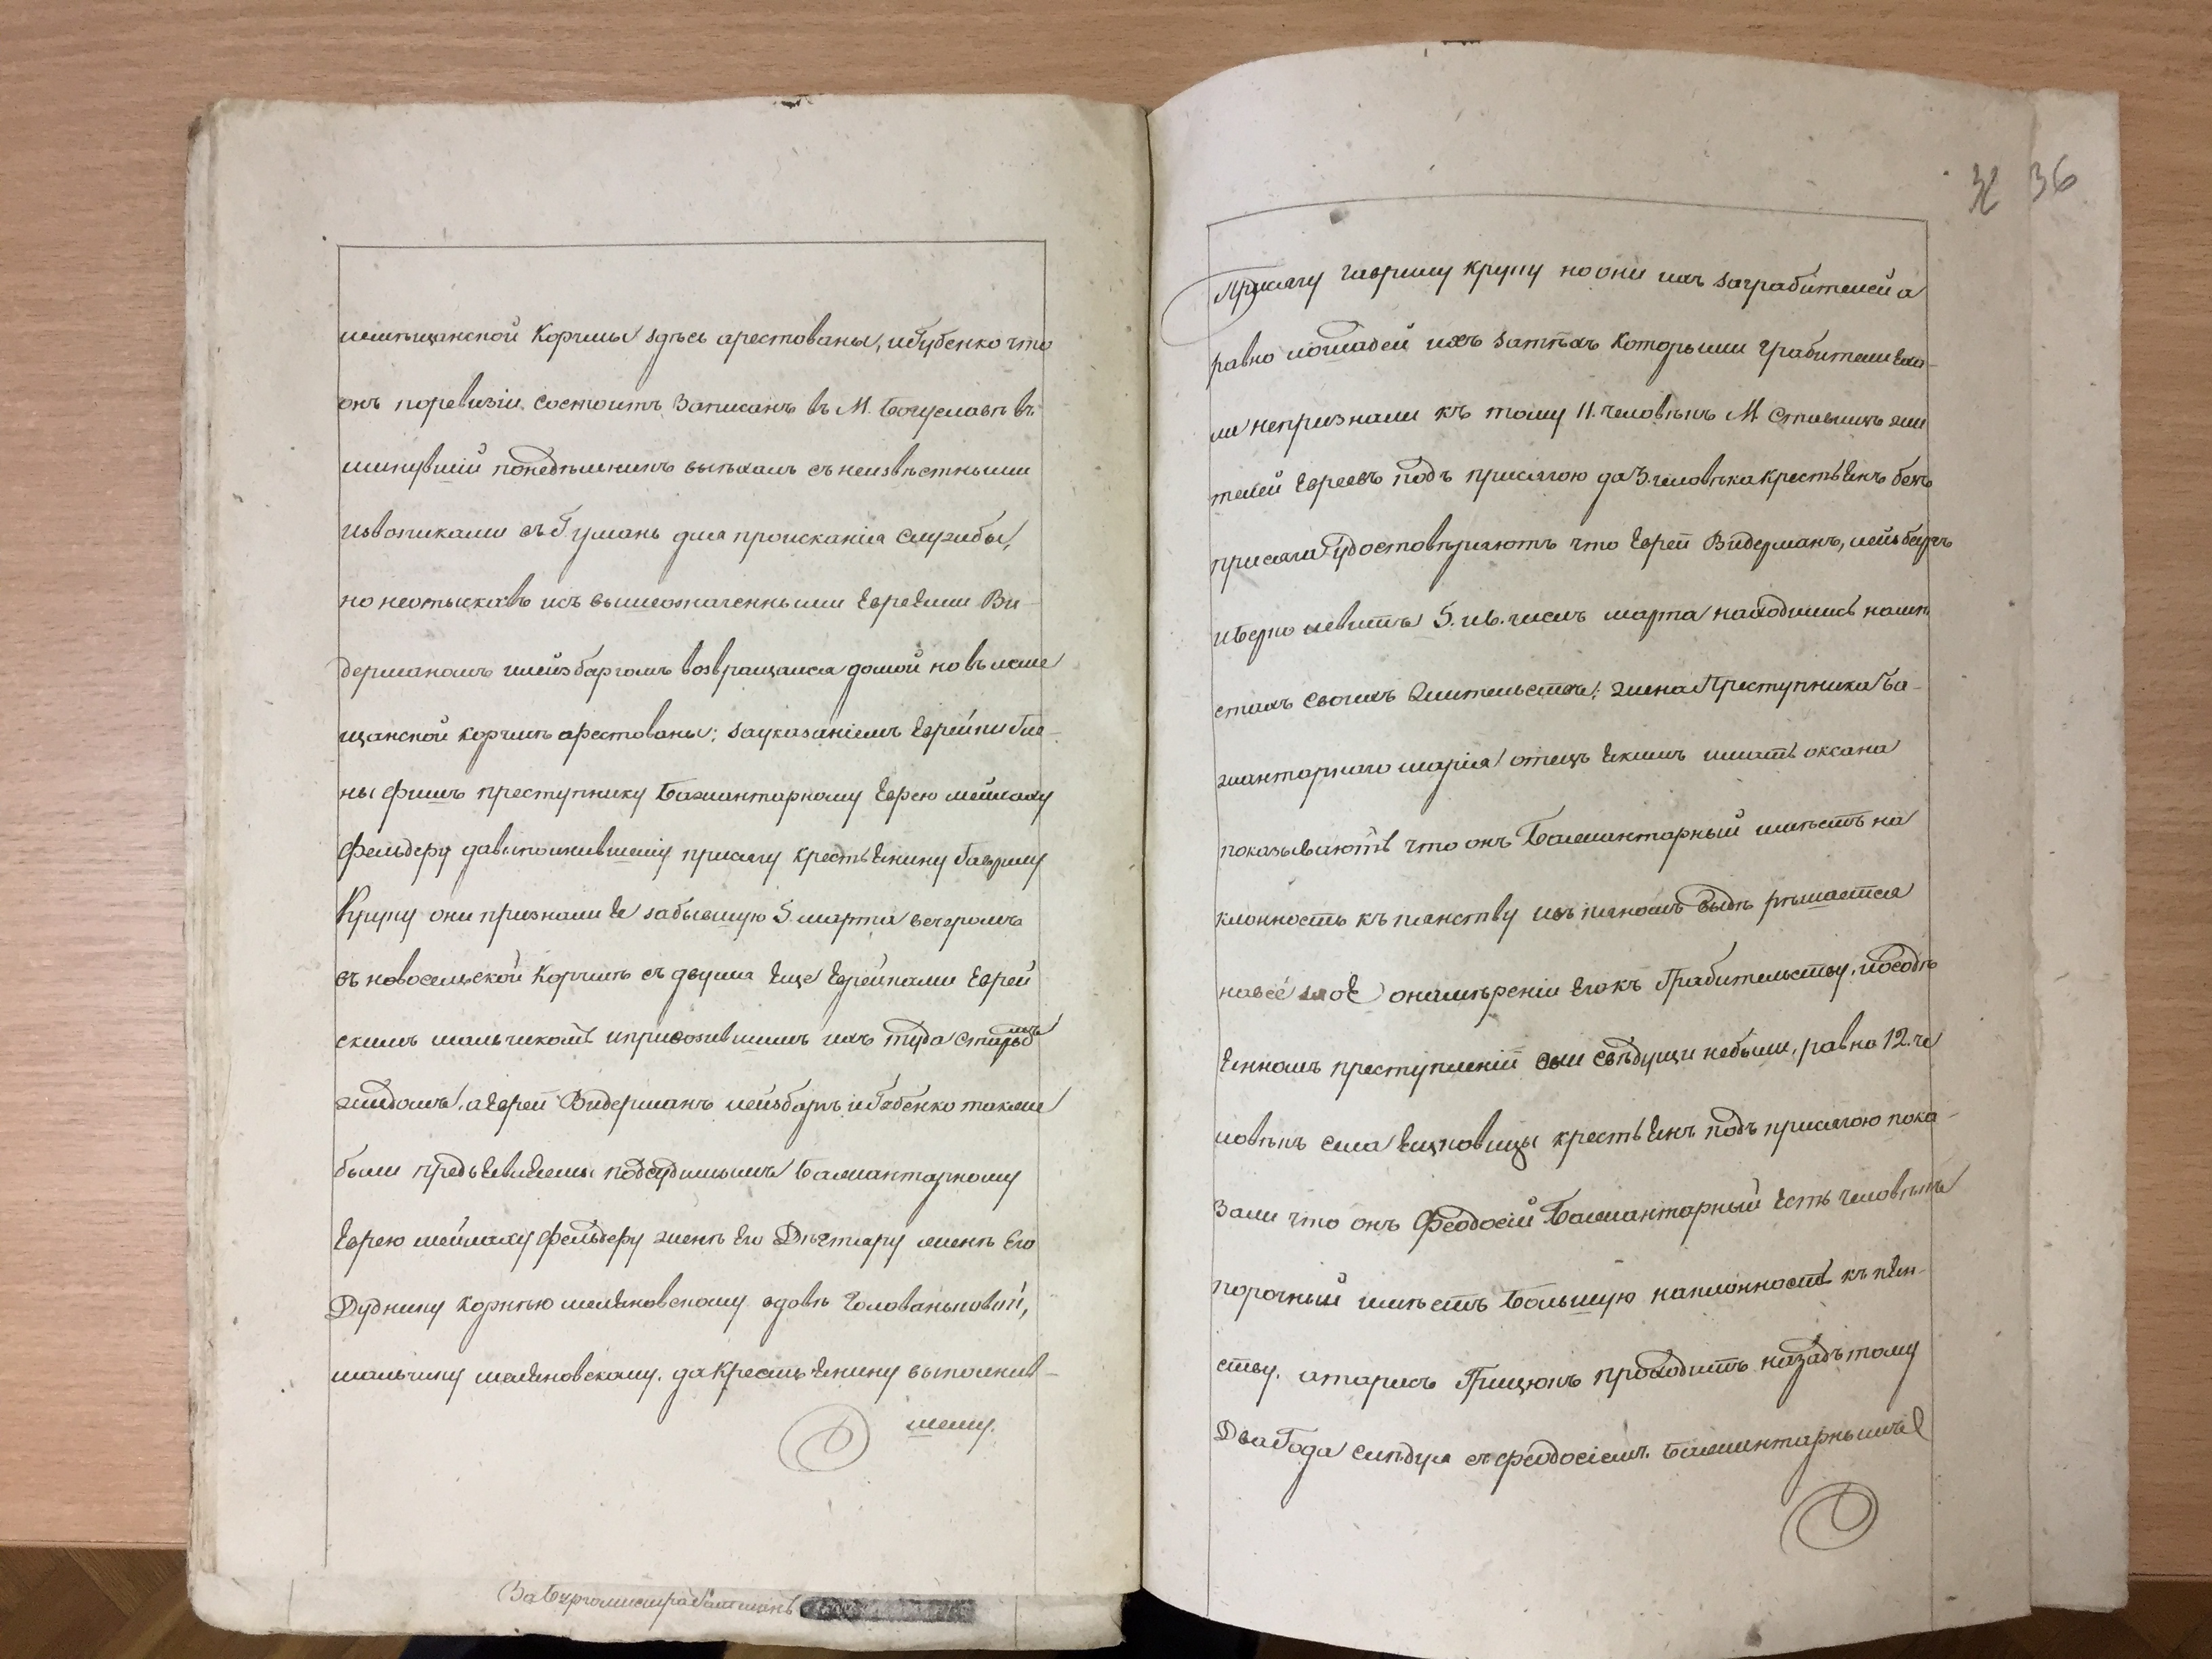 мешъщанской корчмы здѣсь арестованы, и Бубенко что
онъ поревизіи состоитъ записанъ въ М. Богуславѣ въ
минувшій понедѣльникъ выѣхалъ съ неизвѣстными
извощиками въ Г. умань для происканія службы,
но неотыскавъ изъ вышеозначенными Евреями Ви-
дерманомъ илейзбаргомъ возвращался домой но въ
щанской корчмѣ арестованы; зауказаніемъ Еврейки
ны фишъ преступнику Балшантарному Еврею мейлаху
Фельдеру давыполнившему присягу крестьянину Гаврилу
Крупу они признали ея забывшую 5. марта вечеромъ
въ новосельской корчмѣ съ двумя еще Еврейками Еврей
скимъ мальчикомъ ипривозившимъ ихъ туда старымъ
жидомъ, а Евреи Видерманъ лейзбаргъ и Бубенко также
были предъявляемы подсудимымъ Балшантарному
Еврею мейлаху Фельдеру женѣ его Дѣхтяру женѣ его
Дудкину корнѣю вдовѣ
мальчику да крестьянину выполнив-
шему.
За Бургомистра
36
Присягу Гаврилу Крупу но они ихъ заграбителей а
равно лошадей ихъ затѣхъ которыми грабители еха-
ли непризнали къ тому 11. человѣкъ М. Ставищъ жи
телей Евреевъ подъ присягою да 3. человѣка крестьянъ безъ
присяги удостовѣряютъ что Еврей Видерманъ, лейзбаргъ
иберко левитъ 5. и 6. числъ марта находились намѣ
стахъ своихъ жительствъ; жена преступника Ба-
лшантарного марія отецъ Екимъ имать оксана
показываютъ что онъ Балшантарный имѣетъ на
клонность къ пянству изъ пяномъ видѣ рѣшается
навсе злое онамѣреніи его къ Грабительству, и
янномъ преступленіи они свѣдущи небыли, равно 12. че
ловѣкъ села крестьянъ подъ присягою пока-
зали что онъ Феодосій Балшантарный есть человѣкъ
порочный имѣетъ большую наклонность къ пян-
ству. Грицюкъ проходитъ назадъ тому
Два Года слѣдуя съ Феодосіемъ Балшантарнымъ